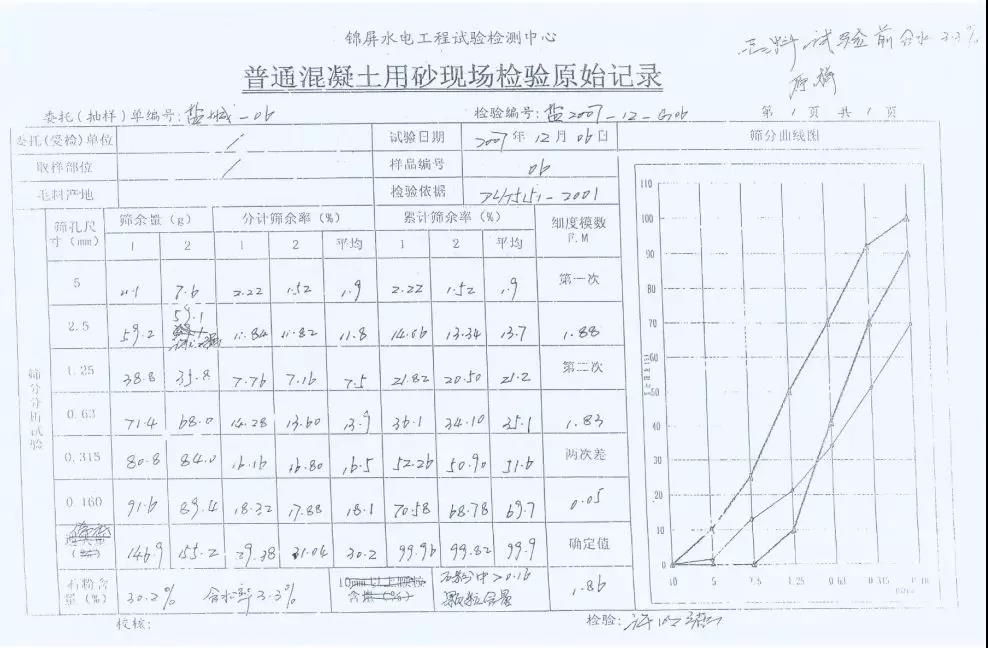 锦屏水电工程试验检测中心
普通混凝土用砂现场检验原始记录
试验前含水 3.3%
原样
委托(抽样)单编号: -06
检验编号: 盐2007-12-G06
第 1 页 共 1 页
委托(受检)单位 / 试验日期 2007年12月06日 筛分曲线图
取样部位 / 样品编号 06
毛料产地 检验依据 DL/T5151-2001
筛分分析试验
筛孔尺寸(mm) 筛余量(g) 分计筛余率(%) 累计筛余率(%) 细度模数 F.M
1 2 1 2 平均 1 2 平均
5 11.1 7.6 2.22 1.52 1.9 2.22 1.52 1.9 第一次
2.5 59.2 59.1 11.84 11.82 11.8 14.06 13.34 13.7 1.88
1.25 38.8 35.8 7.76 7.16 7.5 21.82 20.50 21.2 第二次
0.63 71.4 68.0 14.28 13.60 13.9 36.1 34.10 35.1 1.83
0.315 80.8 84.0 16.16 16.80 16.5 52.26 50.90 51.6 两次差
0.160 91.6 89.4 18.32 17.88 18.1 70.58 68.78 69.7 0.05
146.9 155.2 29.38 31.04 30.2 99.96 99.82 99.9 确定值
石粉含量(%) 30.2% 含水率3.3% 10mm以上颗粒含量(%) 石粉中>0.16颗粒含量 1.86
110
100
90
80
70
60
50
40
30
20
10
0
10 5 2.5 1.25 0.63 0.315 0.16
校核:
检验: